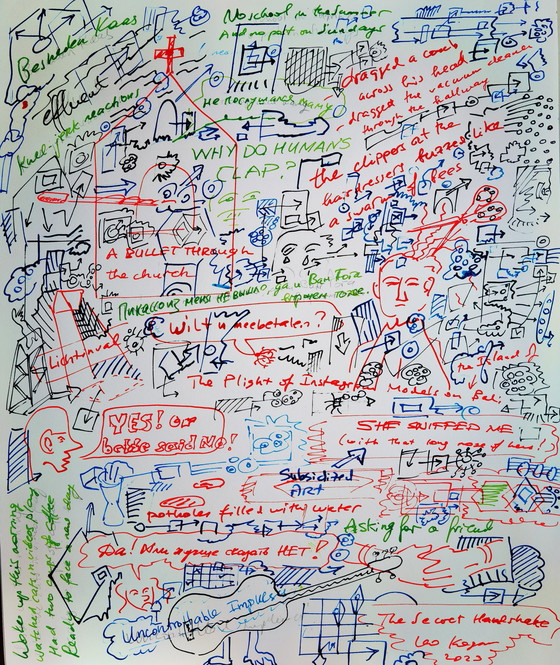 Kaas
effluent
Knee-jerk reactions
No school in the summer
And no on Sundays
не послушался маму
WHY DO HUMANS
CLAP?
dragged a comb
across his head
dragged the vacuum cleaner
through the hallway
the clippers at the
hairdressers buzzes like
a swarm of bees
A BULLET THROUGH
the church
Пикассо из меня не вышло, да и Ван Гога
впрочем тоже.
Wilt u meebetalen?
Lichtinval
The Plight of Instagram Models on Bali,
the Island of
YES! Or
said No!
SHE SNIFFED ME
(with that long nose of hers!)
Subsidized
Art
potholes filled with water
Asking for a friend
Да! Или лучше сказать НЕТ!
Woke up this morning
Watched play
Had two cups of coffee
Ready to face the day
Uncontrollable Impulses
The Secret Handshake
Leo Kogan
2023